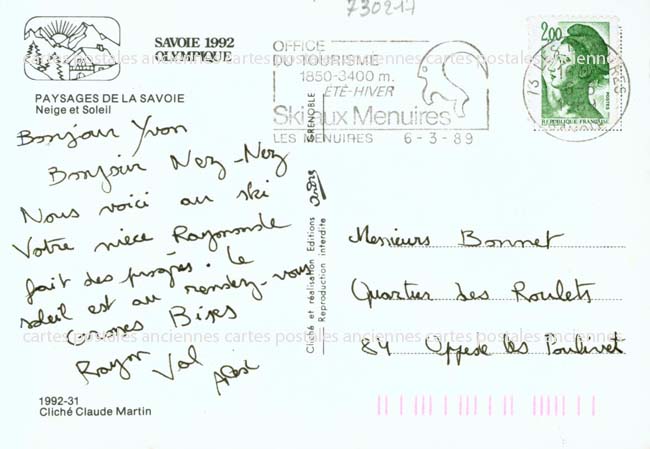 730217
SAVOIE 1992
OLYMPIQUE
PAYSAGES DE LA SAVOIE
Neige et Soleil
OFFICE
DU TOURISME
1850-3400 m.
ÉTÉ-HIVER
Ski aux Menuires
LES MENUIRES 6-3-89
2,00
POSTES
REPUBLIQUE FRANÇAISE
73 LES
SAVOIE
Bonjour Yvon
Bonjour Nez-Nez
Nous voici au ski
Votre niece Raymonde
fait des progrès. Le
soleil est au rendez-vous
Grosses Bises
Val
GRENOBLE
Cliché et réalisation Editions
Reproduction interdite
Messieurs Bonnet
Quartier des Roulets
84 Oppede les Poulivets
1992-31
Cliché Claude Martin
cartes postales anciennes cartes postales anciennes cartes postales anciennes
cartes postales anciennes cartes postales anciennes cartes postales anciennes